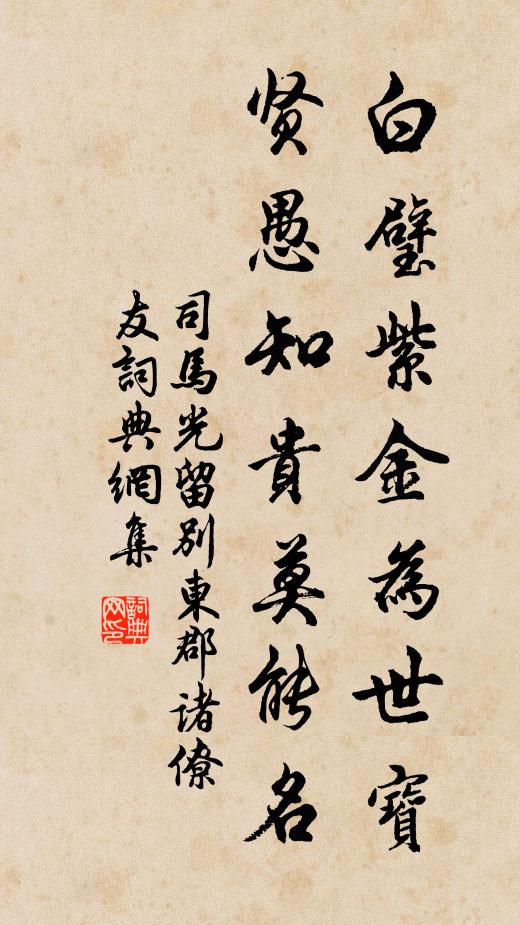 白璧紫金為世寶
贤愚知貴莫能名
司馬光留別東郡诸僚
友詞典網集
詞典
网印